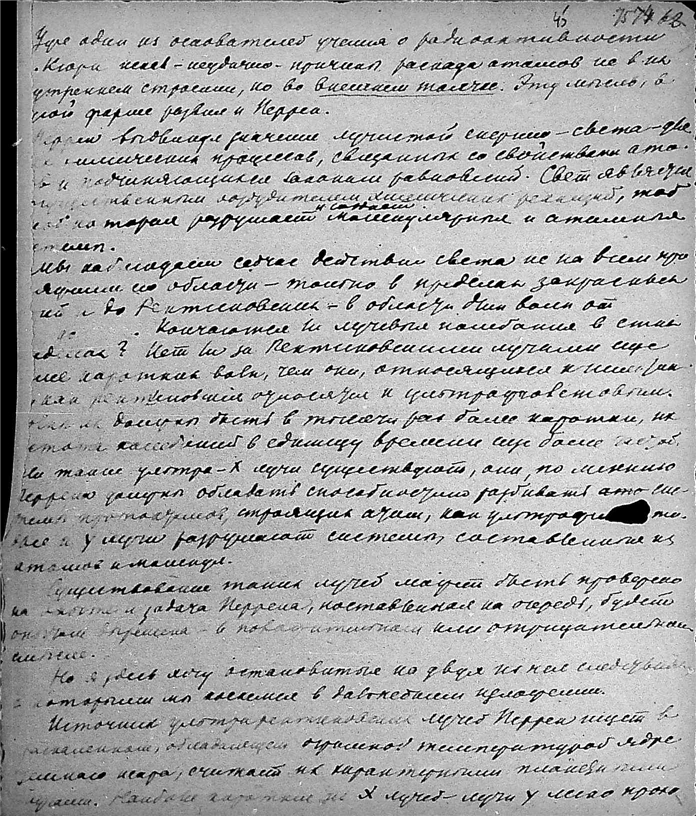 45 1574 62
Уже один из основателей учения о радиоактивности
Кюри искал – неудачно – причины распада атомов не в их
утреннем строении, но во внешнем толчке. Эту мысль, в
ной форме развил и Перрен.
Перрен выдвинул значение лучистой энергии – света – для
химических процессов, связанных со свойствами ато
и подчиняющихся законам равновесий. Свет является
возбудителем химических реакций,
которая разрушает молекулярные и атомные
стемы.
Мы наблюдаем сейчас действие света не на всем про
области – только в пределах закрасных
и до Рентгеновских – в области длин волн от
до . Кончаются ли лучевые колебания в этих
делах? Нет ли за Рентгеновскими лучами еще
лее коротких волн, чем они, относящихся к ним так
как рентгеновские относятся к ультрафиолетовым.
их должны быть в тысячи раз более коротки, их
стота колебаний в единицу времени еще более
ли такие ультра-X лучи существуют, они, по мнению
Перрена должны обладать способностью разбивать ато сис-
темы протоатомов, строящих атом, как ультрафи
и γ лучи разрушают системы, составленные из
атомов и молекул.
Существование таких лучей может быть проверено
на опыте и задача Перрена, поставленная на очередь, будет
решена – в положительном или отрицательном
смысле.
Но я здесь хочу остановиться на двух из нее следствиях
с которыми мы коснемся в дальнейшем изложении.
Источник ультрарентгеновских лучей Перрен ищет в
раскаленном, обладающем огромной температурой ядре
земного шара, считает их характерными
лучами. Наиболее короткие из X лучей – лучи γ легко прохо